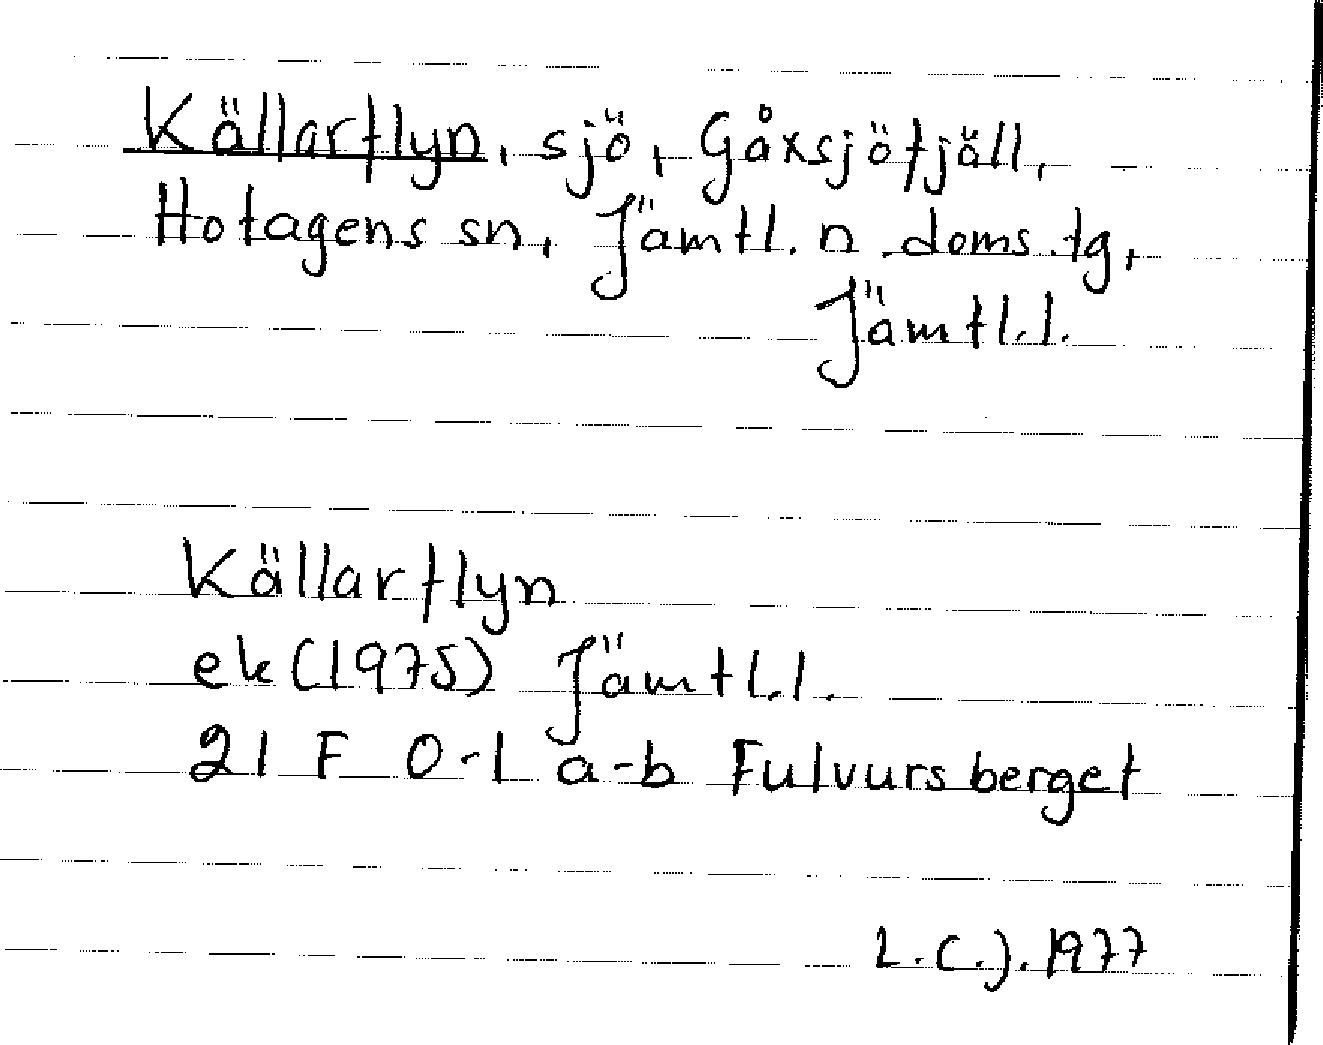 Källarflyn, sjö, Gåxsjöfjäll,
Hotagens sn, Jämtl. n doms.tg,
Jämtl.l.
Källarflyn
ek (1975) Jämtl.l.
21 F 0-1 a-b Fulvursberget
L.C.J. 1977